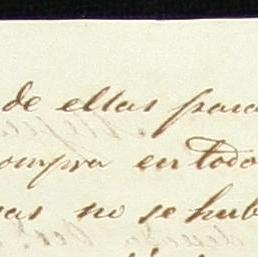 de ellas para
compra en todo
no se hub